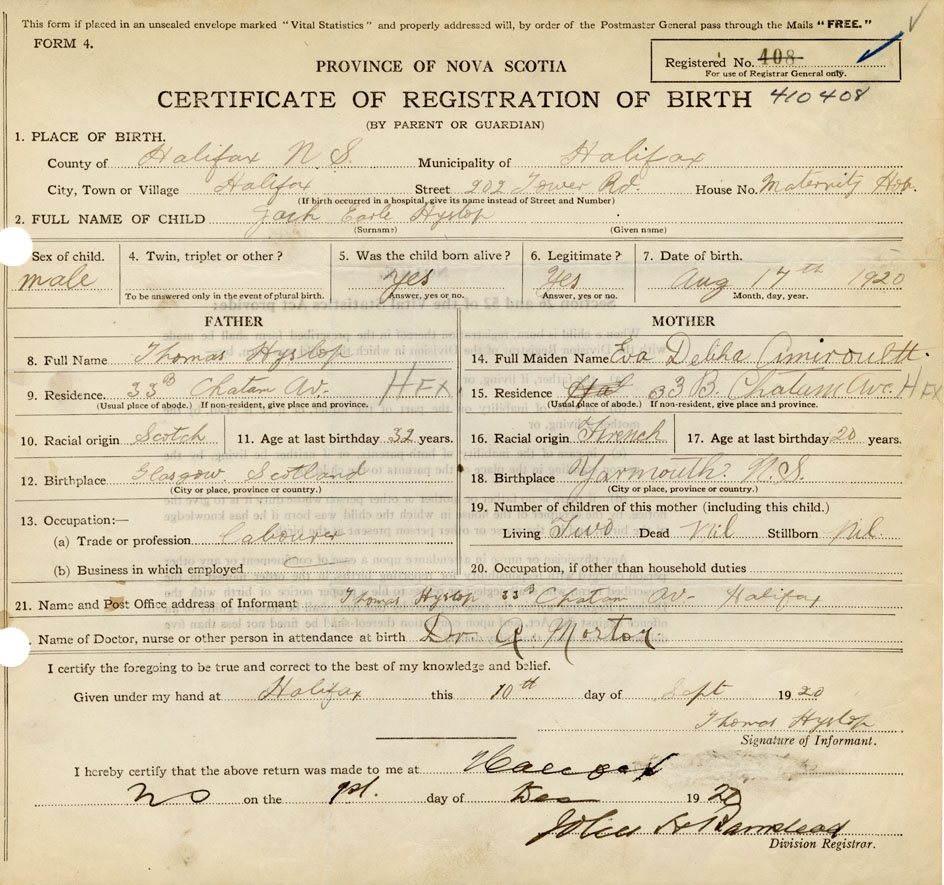 This form if placed in an unsealed envelope marked "Vital Statistics" and properly addressed will, by order of the Postmaster General pass through the Mails "FREE."
FORM 4.
Registered No. 408
For use of Registrar General only.
PROVINCE OF NOVA SCOTIA
CERTIFICATE OF REGISTRATION OF BIRTH 410408
(BY PARENT OR GUARDIAN)
1. PLACE OF BIRTH.
County of Halifax N S. Municipality of Halifax
City, Town or Village Halifax Street 202 Tower Rd. House No. Maternity Hos.
(If birth occurred in a hospital, give its name instead of Street and Number)
2. FULL NAME OF CHILD Jack Earle Hyslop
(Surname) (Given name)
Sex of child. 4. Twin, triplet or other? 5. Was the child born alive? 6. Legitimate? 7. Date of birth.
male yes Yes Aug 17th 1920
To be answered only in the event of plural birth. Answer, yes or no. Answer, yes or no. Month, day, year.
FATHER MOTHER
8. Full Name Thomas Hyslop 14. Full Maiden Name Eva
9. Residence. 33B Chatam Av. HFX 15. Residence Hal 33 B Chatam Ave. HFX
(Usual place of abode.) If non-resident, give place and province. (Usual place of abode.) If non-resident, give place and province.
10. Racial origin Scotch 11. Age at last birthday 32 years. 16. Racial origin French 17. Age at last birthday 20 years.
12. Birthplace Glasgow Scotland 18. Birthplace Yarmouth. N.S.
(City or place, province or country.) (City or place, province or country.)
13. Occupation:— 19. Number of children of this mother (including this child.)
(a) Trade or profession Labourer Living Two Dead Nil Stillborn Nil
(b) Business in which employed 20. Occupation, if other than household duties
21. Name and Post Office address of Informant Thomas Hyslop 33B Chatam Av. Halifax
. Name of Doctor, nurse or other person in attendance at birth Dr. A Morton.
I certify the foregoing to be true and correct to the best of my knowledge and belief.
Given under my hand at Halifax this 10th day of Sept 1920
Thomas Hyslop
Signature of Informant.
I hereby certify that the above return was made to me at
on the 1st. day of Dec 1920
John
Division Registrar.